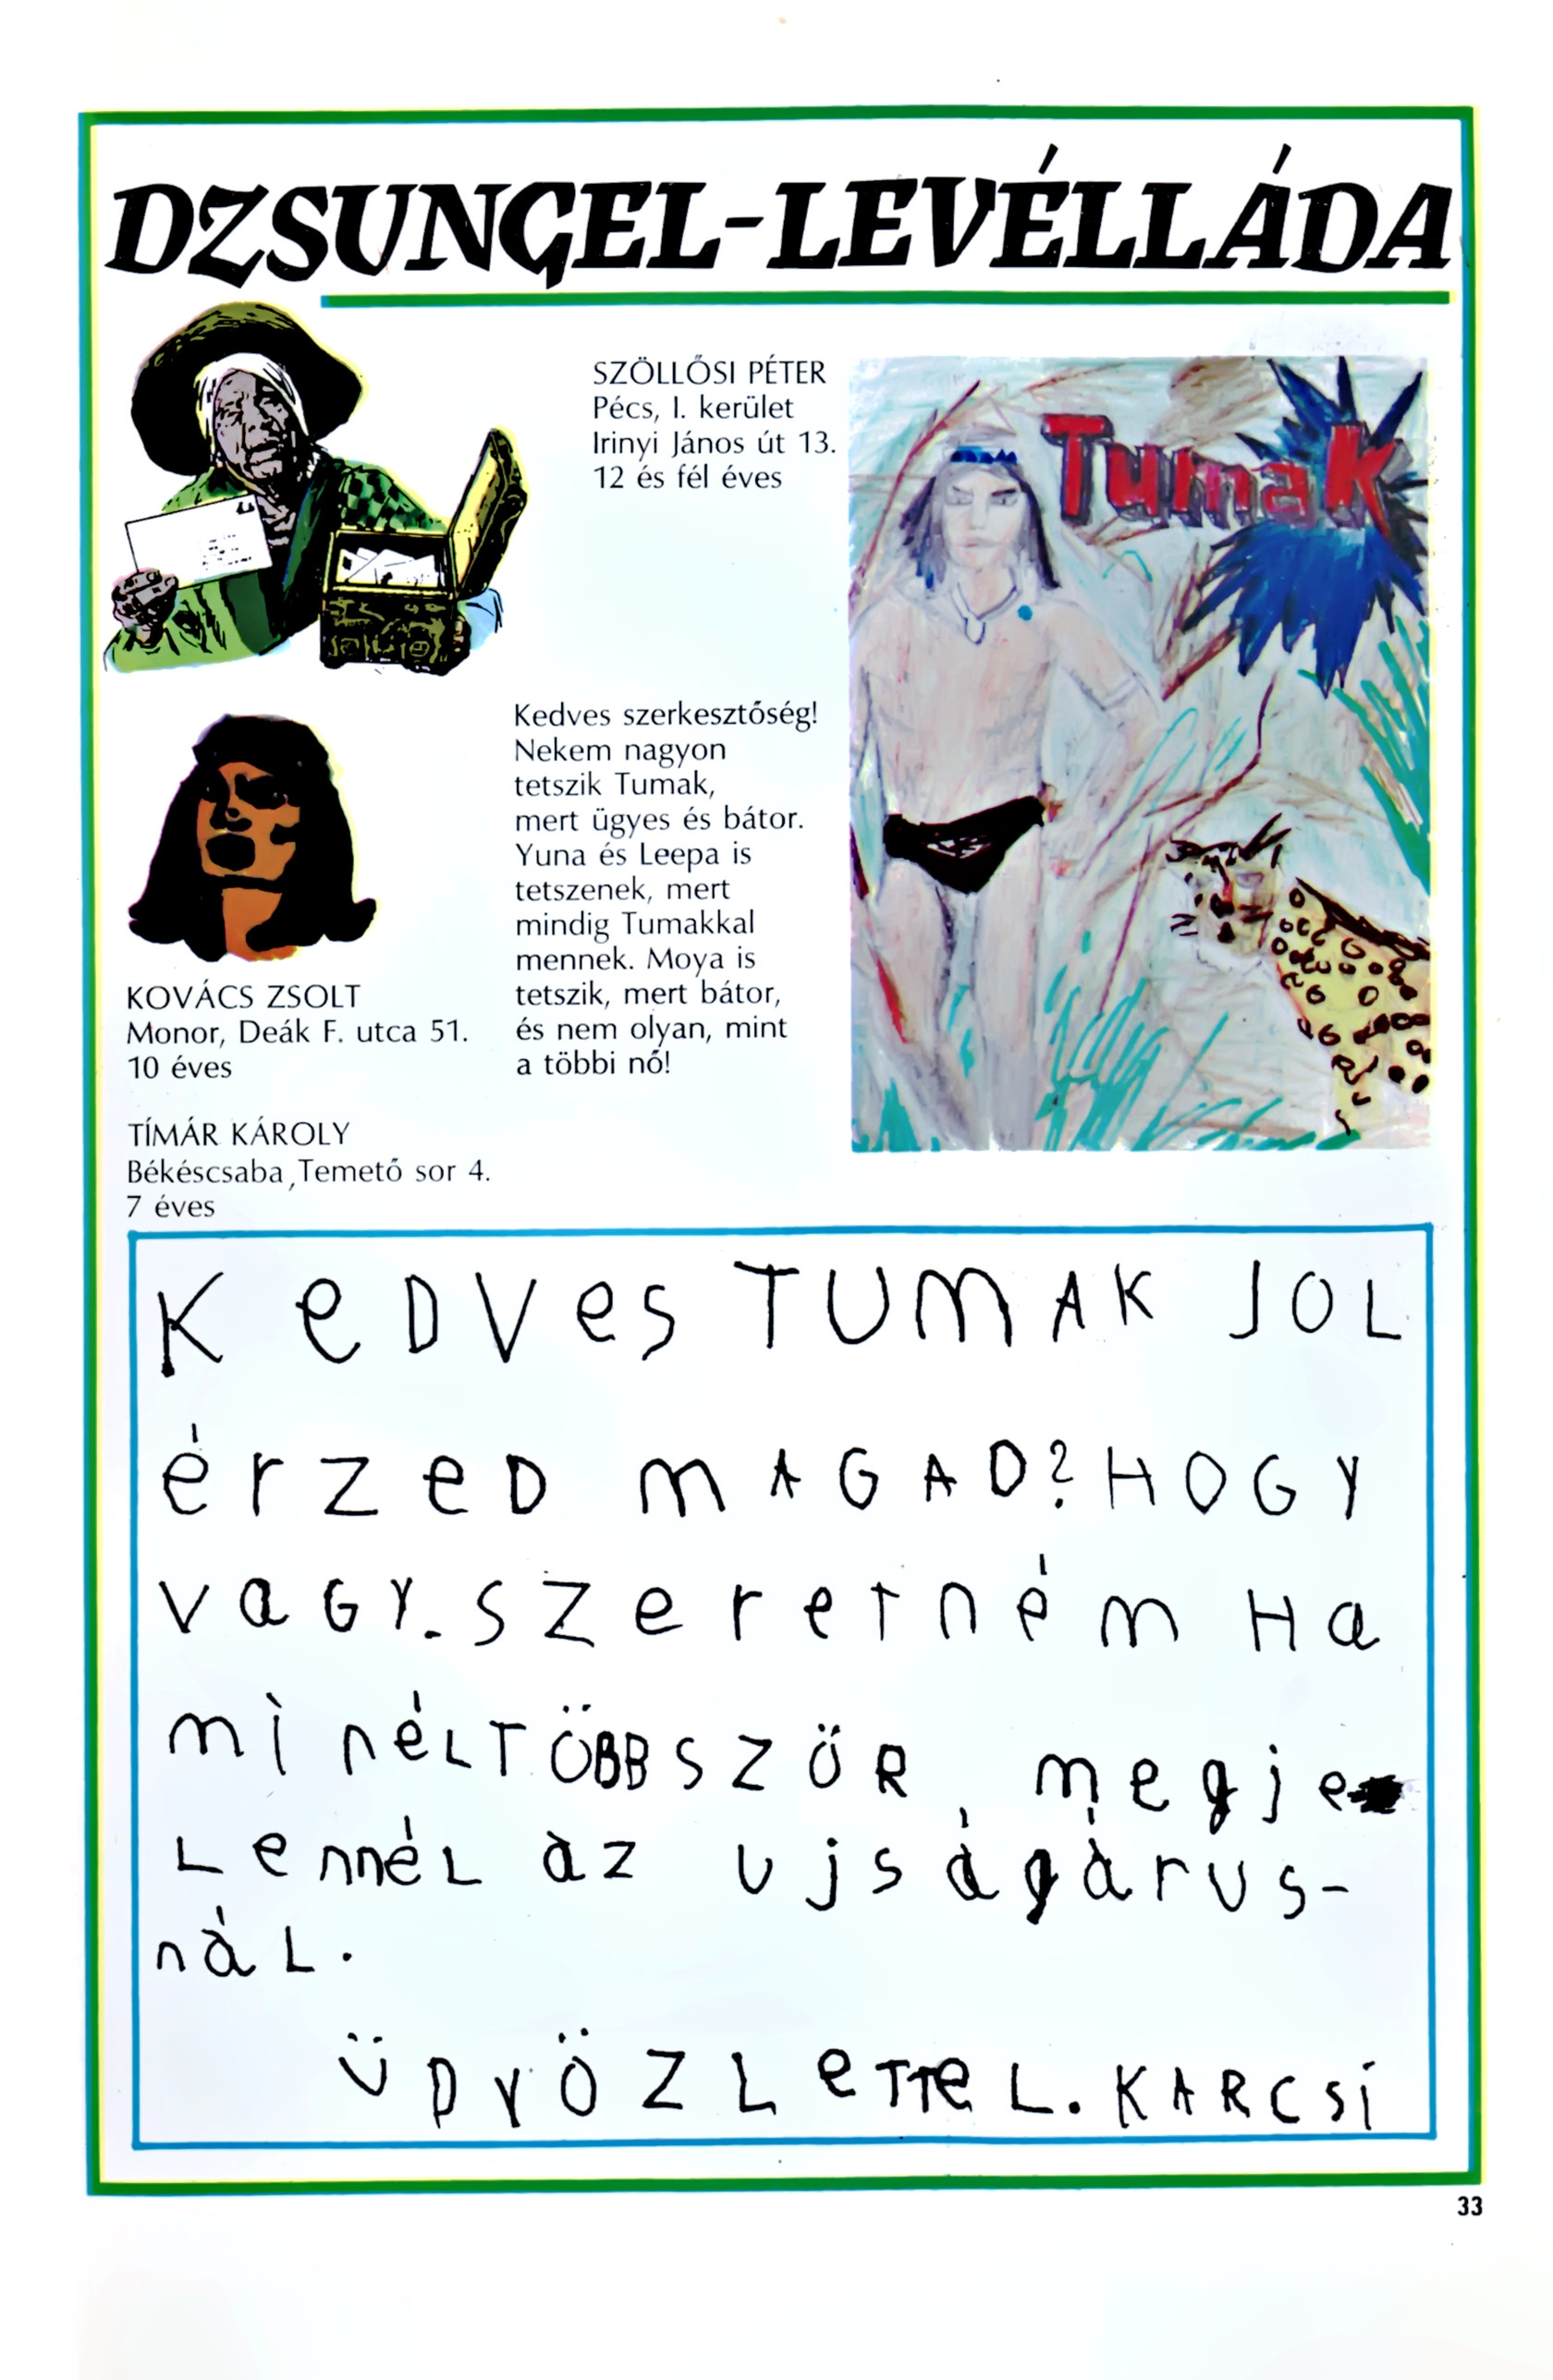 DZSUNGEL-LEVÉLLÁDA
SZÖLLŐSI PÉTER
Pécs, I. kerület
Irinyi János út 13.
12 és fél éves
Tumak
Kedves szerkesztőség!
Nekem nagyon
tetszik Tumak,
mert ügyes és bátor.
Yuna és Leepa is
tetszenek, mert
mindig Tumakkal
mennek. Moya is
tetszik, mert bátor,
és nem olyan, mint
a többi nő!
KOVÁCS ZSOLT
Monor, Deák F. utca 51.
10 éves
TÍMÁR KÁROLY
Békéscsaba, Temető sor 4.
7 éves
KeDVes TUMAK JOL
érzeD MAGAD? HOGY
vaGY. szeretném Ha
mi néLTÖBBSZÖR megje
Lennél az ujságárus-
náL.
ÜDVÖZLeTTeL. KARCSi
33